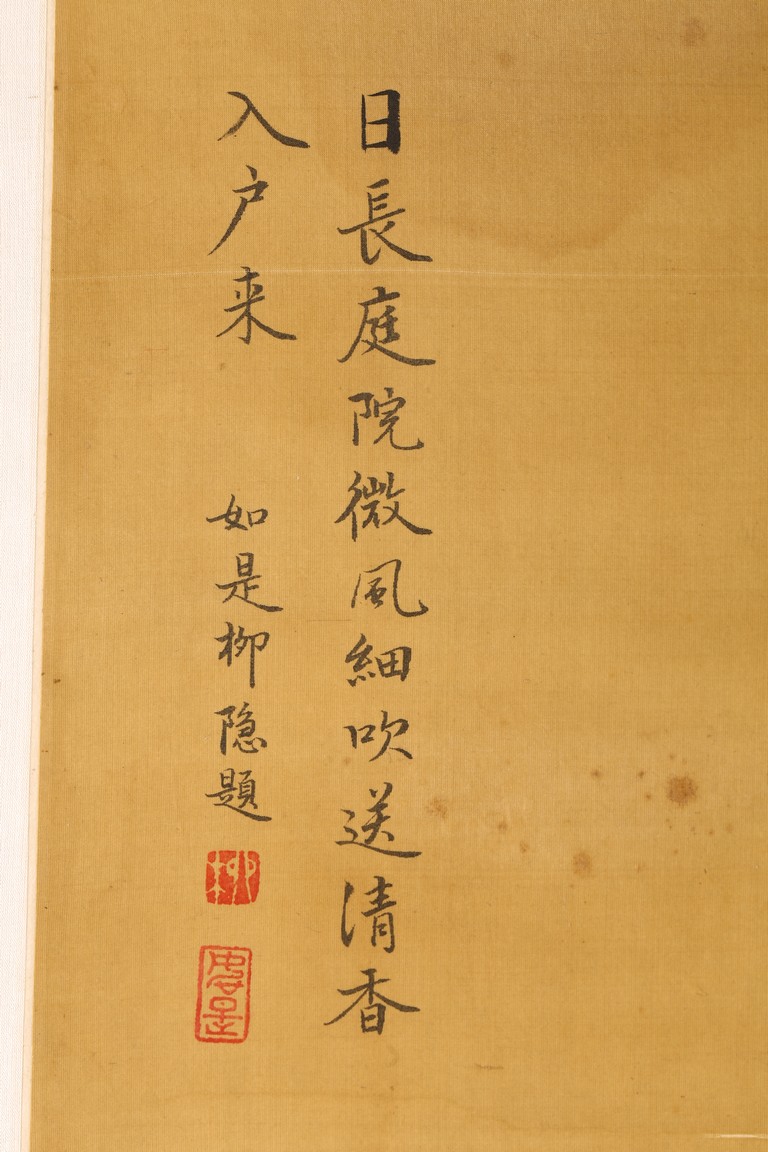 日長庭院微風細吹送清香
入户来
如是柳隐題
柳
如是